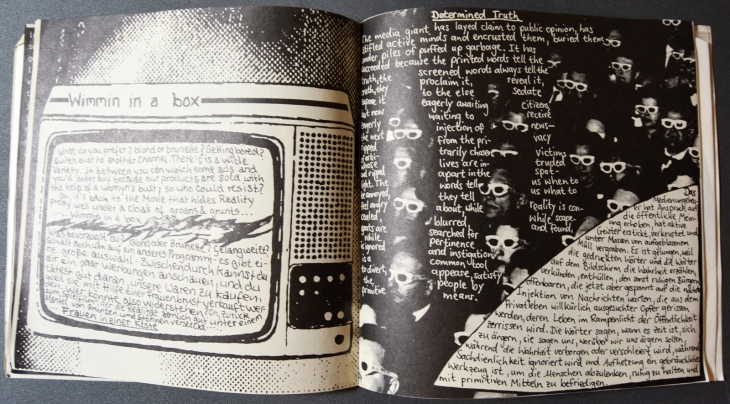 Wimmin in a box
What do you prefer? blond or brunette? Getting bored?
Switch over to another channel. There is a wide
Variety. In between you can watch some ads and
you'd better buy because our products are sold with
the help of a womyn's bust; so who could resist?
back to the Movie that hides Reality
pretty well under a cloak of groans & grunts...
Wimmin in a box
bevorzugst du? Blond oder Brünette? Gelangweilt?
Schalt doch um auf ein anderes Programm - es gibt eine
große Auswahl. Zwischendurch kannst du
dir ein paar Werbungen anschauen, und du
tätest gut daran, unsere Waren zu kaufen,
denn sie mit Hilfe einer Frauenbrust verkauft werden
also widerstehen? Und zurück
Realität
Mantel von Grunzen und Stöhnen versteckt...
Frauen in einer Kiste
Determined Truth
The media giant has layed claim to public opinion, has
stifled active minds and encrusted them, buried them
under piles of puffed up garbage. It has
succeeded because the printed words tell the
truth, the screened words always tell the
truth, they proclaim it, reveal it,
expose it to the else sedate
but now eagerly awaiting citizens
eagerly waiting to receive
the next injection of news-
ripped from the pri- vacy
of arbi- trarily chosen victims
whose lives are in- truded
ripped apart in the spot-
light. The words tell us when to
be annoyed, they tell us what to
feel angry about, while reality is con-
cealed, blurred while scape-
goats are searched for and found,
while pertinence
is ignored and instigation
is a common tool
to divert, appease, satisfy
the people by
primitive means.
Das
Medienungeheuer
er hat Anspruch auf
die öffentliche Mein-
ung erhoben, hat aktive
Geister erstickt, verkrustet und
unter Massen von aufgeblasenem
Müll vergraben. Es ist gelungen, weil
die gedruckten Wörter und die Wörter
auf dem Bildschirm die Wahrheit erzählen,
verkünden, enthüllen, den sonst ruhigen Bürgern
offenbaren, die jetzt aber gespannt auf die nächste
Injektion von Nachrichten warten, die aus dem
Privatleben willkürlich ausgesuchter Opfer gerissen
werden, deren Leben im Rampenlicht der Öffentlichkeit
zerrissen wird. Die Wörter sagen, wann es Zeit ist, sich
zu ärgern, sie sagen uns, worüber wir uns ärgern sollen,
während die Wahrheit verborgen oder verschleiert wird, während
Sachdienlichkeit ignoriert wird und Aufhetzung ein gebräuchliches
Werkzeug ist, um die Menschen abzulenken, ruhig zu halten und
mit primitiven Mitteln zu befriedigen.